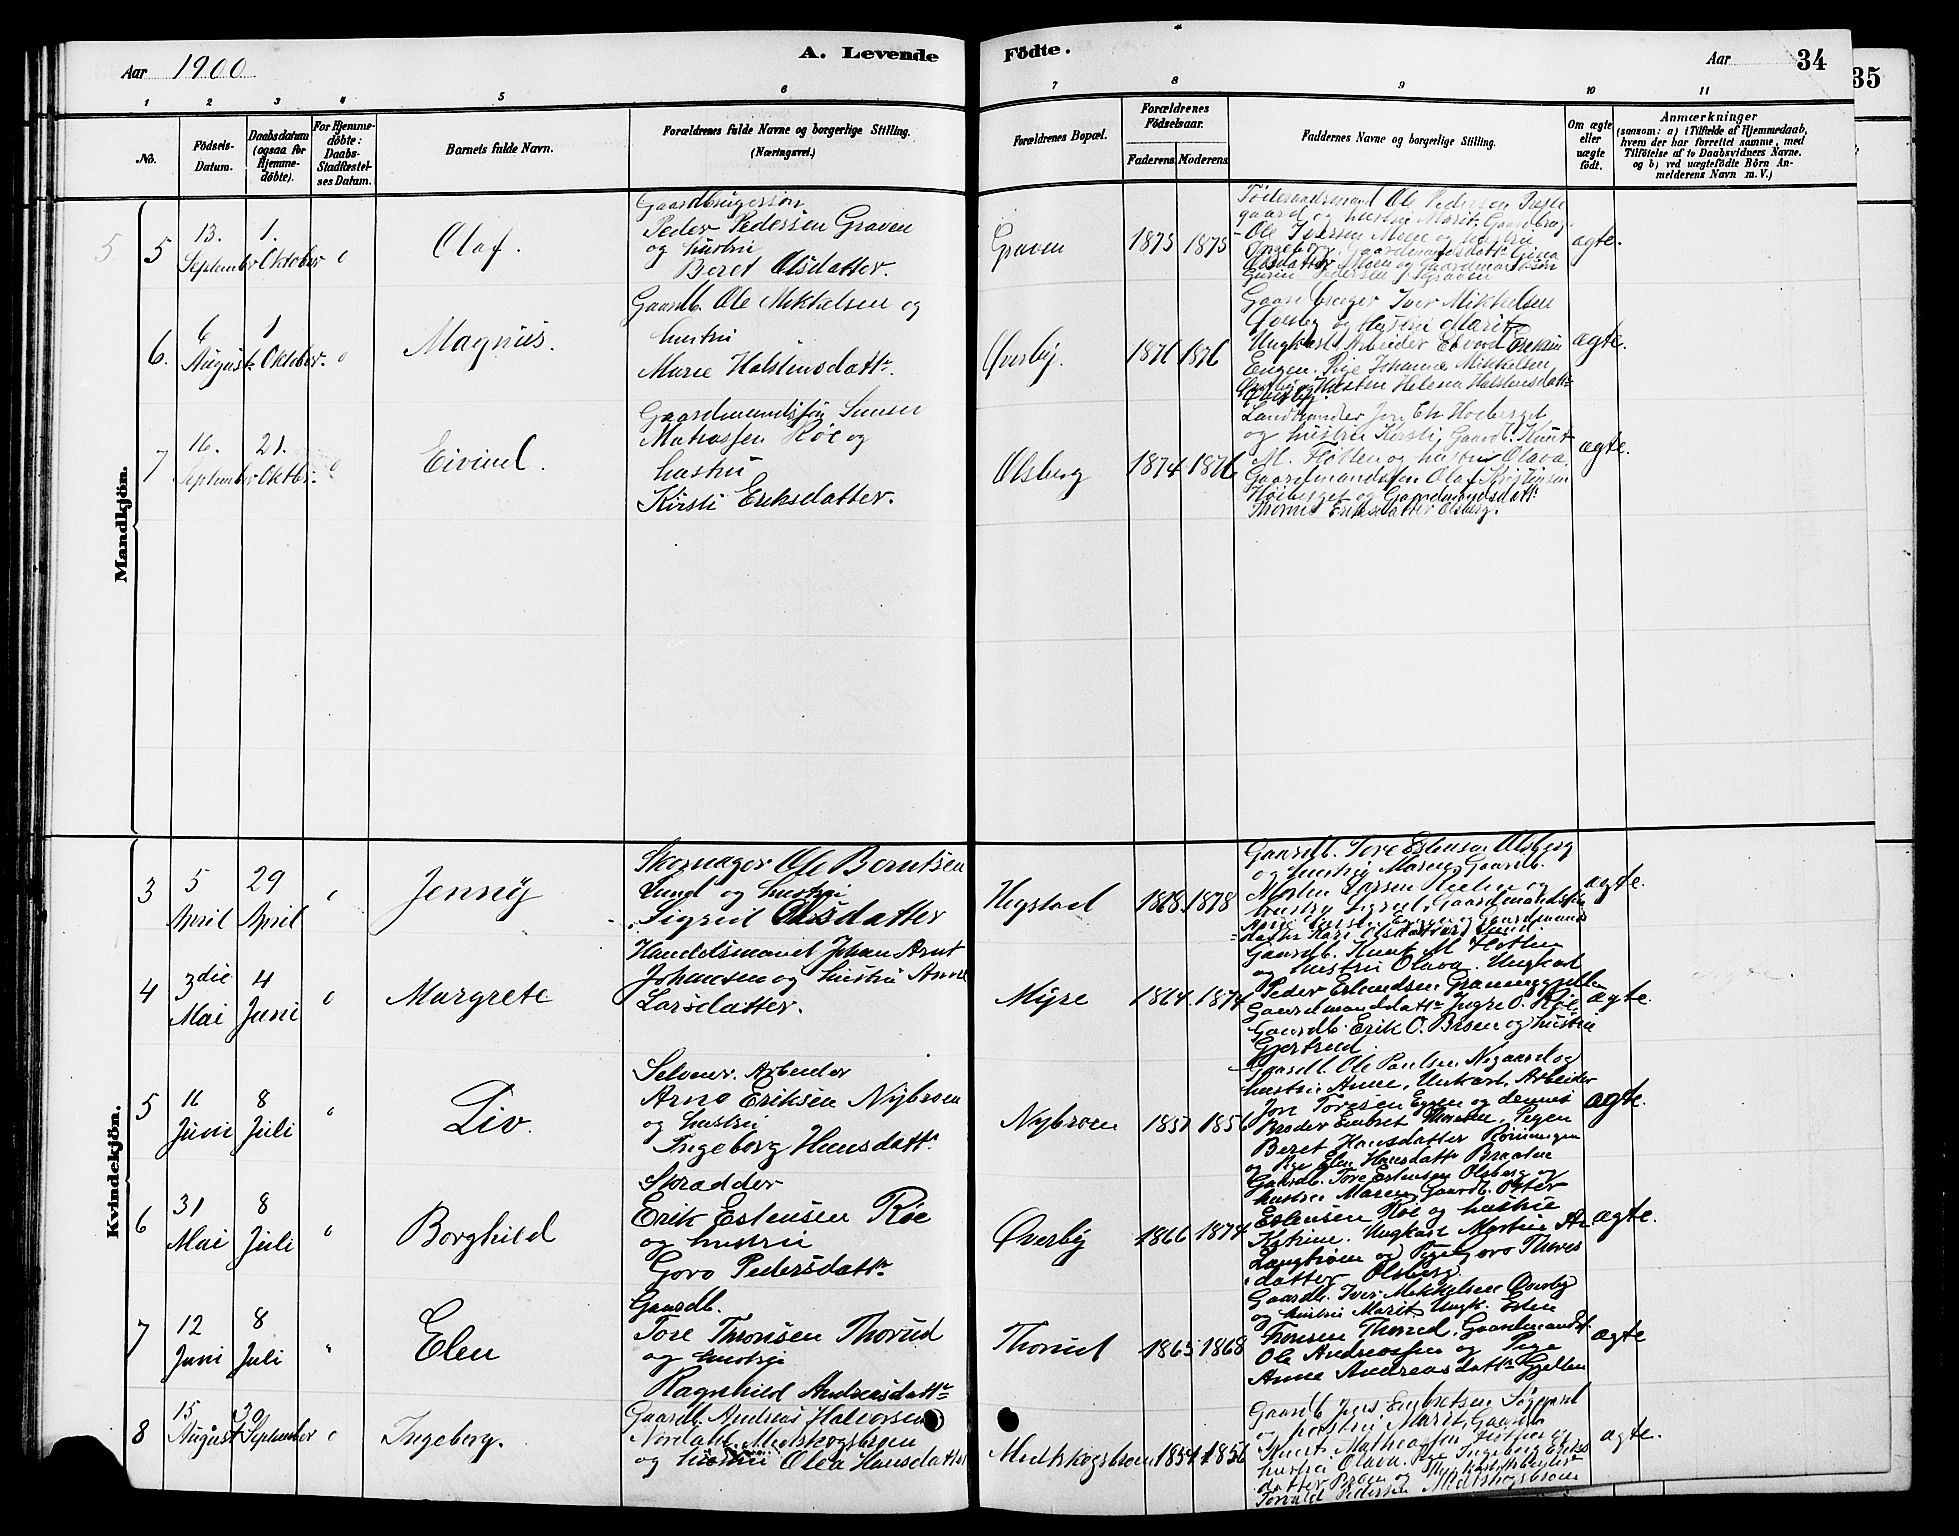 Aar 1900
A. Levende
Födte.
Aar
34
35
1 2 3 4 5 6 7 8 9 10 11
No.
Födsels-
Datum.
Daabsdatum
(ogsaa for
Hjemme-
döbte).
For Hjemme-
döbte:
Daabs-
Stadfæstel-
ses Datum.
Barnets fulde Navn.
Forældrenes fulde Navne og borgerlige Stilling.
(Næringsvei.)
Forældrenes Bopæl.
Forældrenes
Födselsaar.
Faderens Moderens
Faddernes Navne og borgerlige Stilling.
Om ægte
eller
uægte
födt.
Anmærkninger
(saasom: a) i Tilfælde af Hjemmedaab,
hvem der har forrettet samme, med
Tilföielse af to Daabsvidners Navne.
og b) ved uægtefödte Börn An-
melderens Navn m. V.)
Mandkjön.
5.
5
13.
September
1.
Oktober
Olaf.
Gaardbrugersøn
Peder Pedersen Graven
og hustru
Beret Olsdatter.
Graven
1875 1875
Føderaadsmand Ole Pedersen
gaard og hustru Marit, Gaardbrug.
Ole Iversen Moen og hustru
Ingeborg. Gaardmandsdatt. Gina
Olsdatter Moen og Gaardmandssøn
Pedersen Graven
ægte.
6.
6
August
1
Oktober
Magnus.
Gaardb. Ole Mikkelsen og
hustru
Marie Halstensdattr.
Øverby.
1876 1876
Gaardbruger Iver Mikkelsen
Øverby og hustru Marit,
Ungkarl Arbeider Edvard Eriksen
Engen. Pige Johanne Mikkelsen
Øverby og Helena Halstensdattr
Øverby.
ægte.
7
16.
September
21.
Oktbr.
Eivind.
Gaardmandssøn
Mathiassen Røe og
hustru
Kirsti Eriksdatter.
Olsberg
1874 1876
Landhandler Jon Ch. Hoiberget
og hustru Kirsti, Gaardb. Knut
M. Flotten og hustru Olava,
Gaardmandssøn Olaf
Høiberget og Gaardmandsdattr
Eriksdatter Olsberg.
ægte.
Kvindekjön.
3
5
April
29
April
Jenny
Skomager Ole Berntsen
Lund og hustru
Sigrid Olsdatter
Hegstad
1868 1878
Gaardb. Tore Estensen Olsberg
og hustru Maren, Gaardb.
Morten Larsen og
hustru Sigrid, Gaardmandspige
og Gaardmands-
datter Kari Olsdatter Lund.
ægte.
4
3die
Mai
4
Juni
Margrete
Handelsmand Johan Arnt
Johansen og hustru Anne
Larsdatter.
Myre
1864 1874
Gaardb. Knut M Flotten
og hustru Olava. Ungkarl
Peder Erlandsen
Gaardmanddattr. Ingre O. Røe,
Gaardb. Erik O. Brøen og hustru
Gjertrud.
ægte.
5
11
Juni
8
Juli
Liv.
Selveier. Arbeider
Arne Eriksen Nybroen
og hustru
Ingeborg Hansdattr.
Nybroen
1857 1856
Gaardb. Ole Paulsen Nygaard og
hustru Anne, Unkarl. Arbeider
Jon Toresen Eggen og dennes
Broder Embret Pigen
Beret Hansdatter Rønningen
og Pige Elen Hansdattr Braaten
ægte.
6
31
Mai
8
Juli
Borghild
Skrædder
Erik Estensen Røe
og hustru
Goro Pedersdattr.
Øverby
1866 1874
Gaardb. Tore Estensen Olsberg og
hustru Maren, Gaardb. Peter
Estensen Røe og hustru
Katrine. Ungkarl Martin A.
Langbroen og Pige Goro Thores
datter Olsberg.
ægte.
7
12
Juni
8
Juli
Elen
Gaardb.
Tore Thronsen Thorud
og hustru
Ragnhild Andreasdattr
Thorud
1865 1868
Gaardb. Iver Mikkelsen Øverby
og hustru Marit, Ungk. Esten
Tronsen Thorud, Gaardmandst
Ole Andreassen og Pige
Anne Andreasdattr Gjelten
ægte
8
15
August
30
September
Ingeborg.
Gaardb. Andreas Halvorsen
Midtskogsbroen
og hustru Olea Hansdatter
Midtskogsbroen
1854 1856
Gaardb. Jens Engbretsen Søgaard
og hustru Marit, Gaardb
Knut Mathiassen Flotten og
hustru Olava. Pige Ingeborg Eriks
datter Brøen og Ungkarl Arbeider
Torvald Pedersen Midtskogsbroen
ægte.